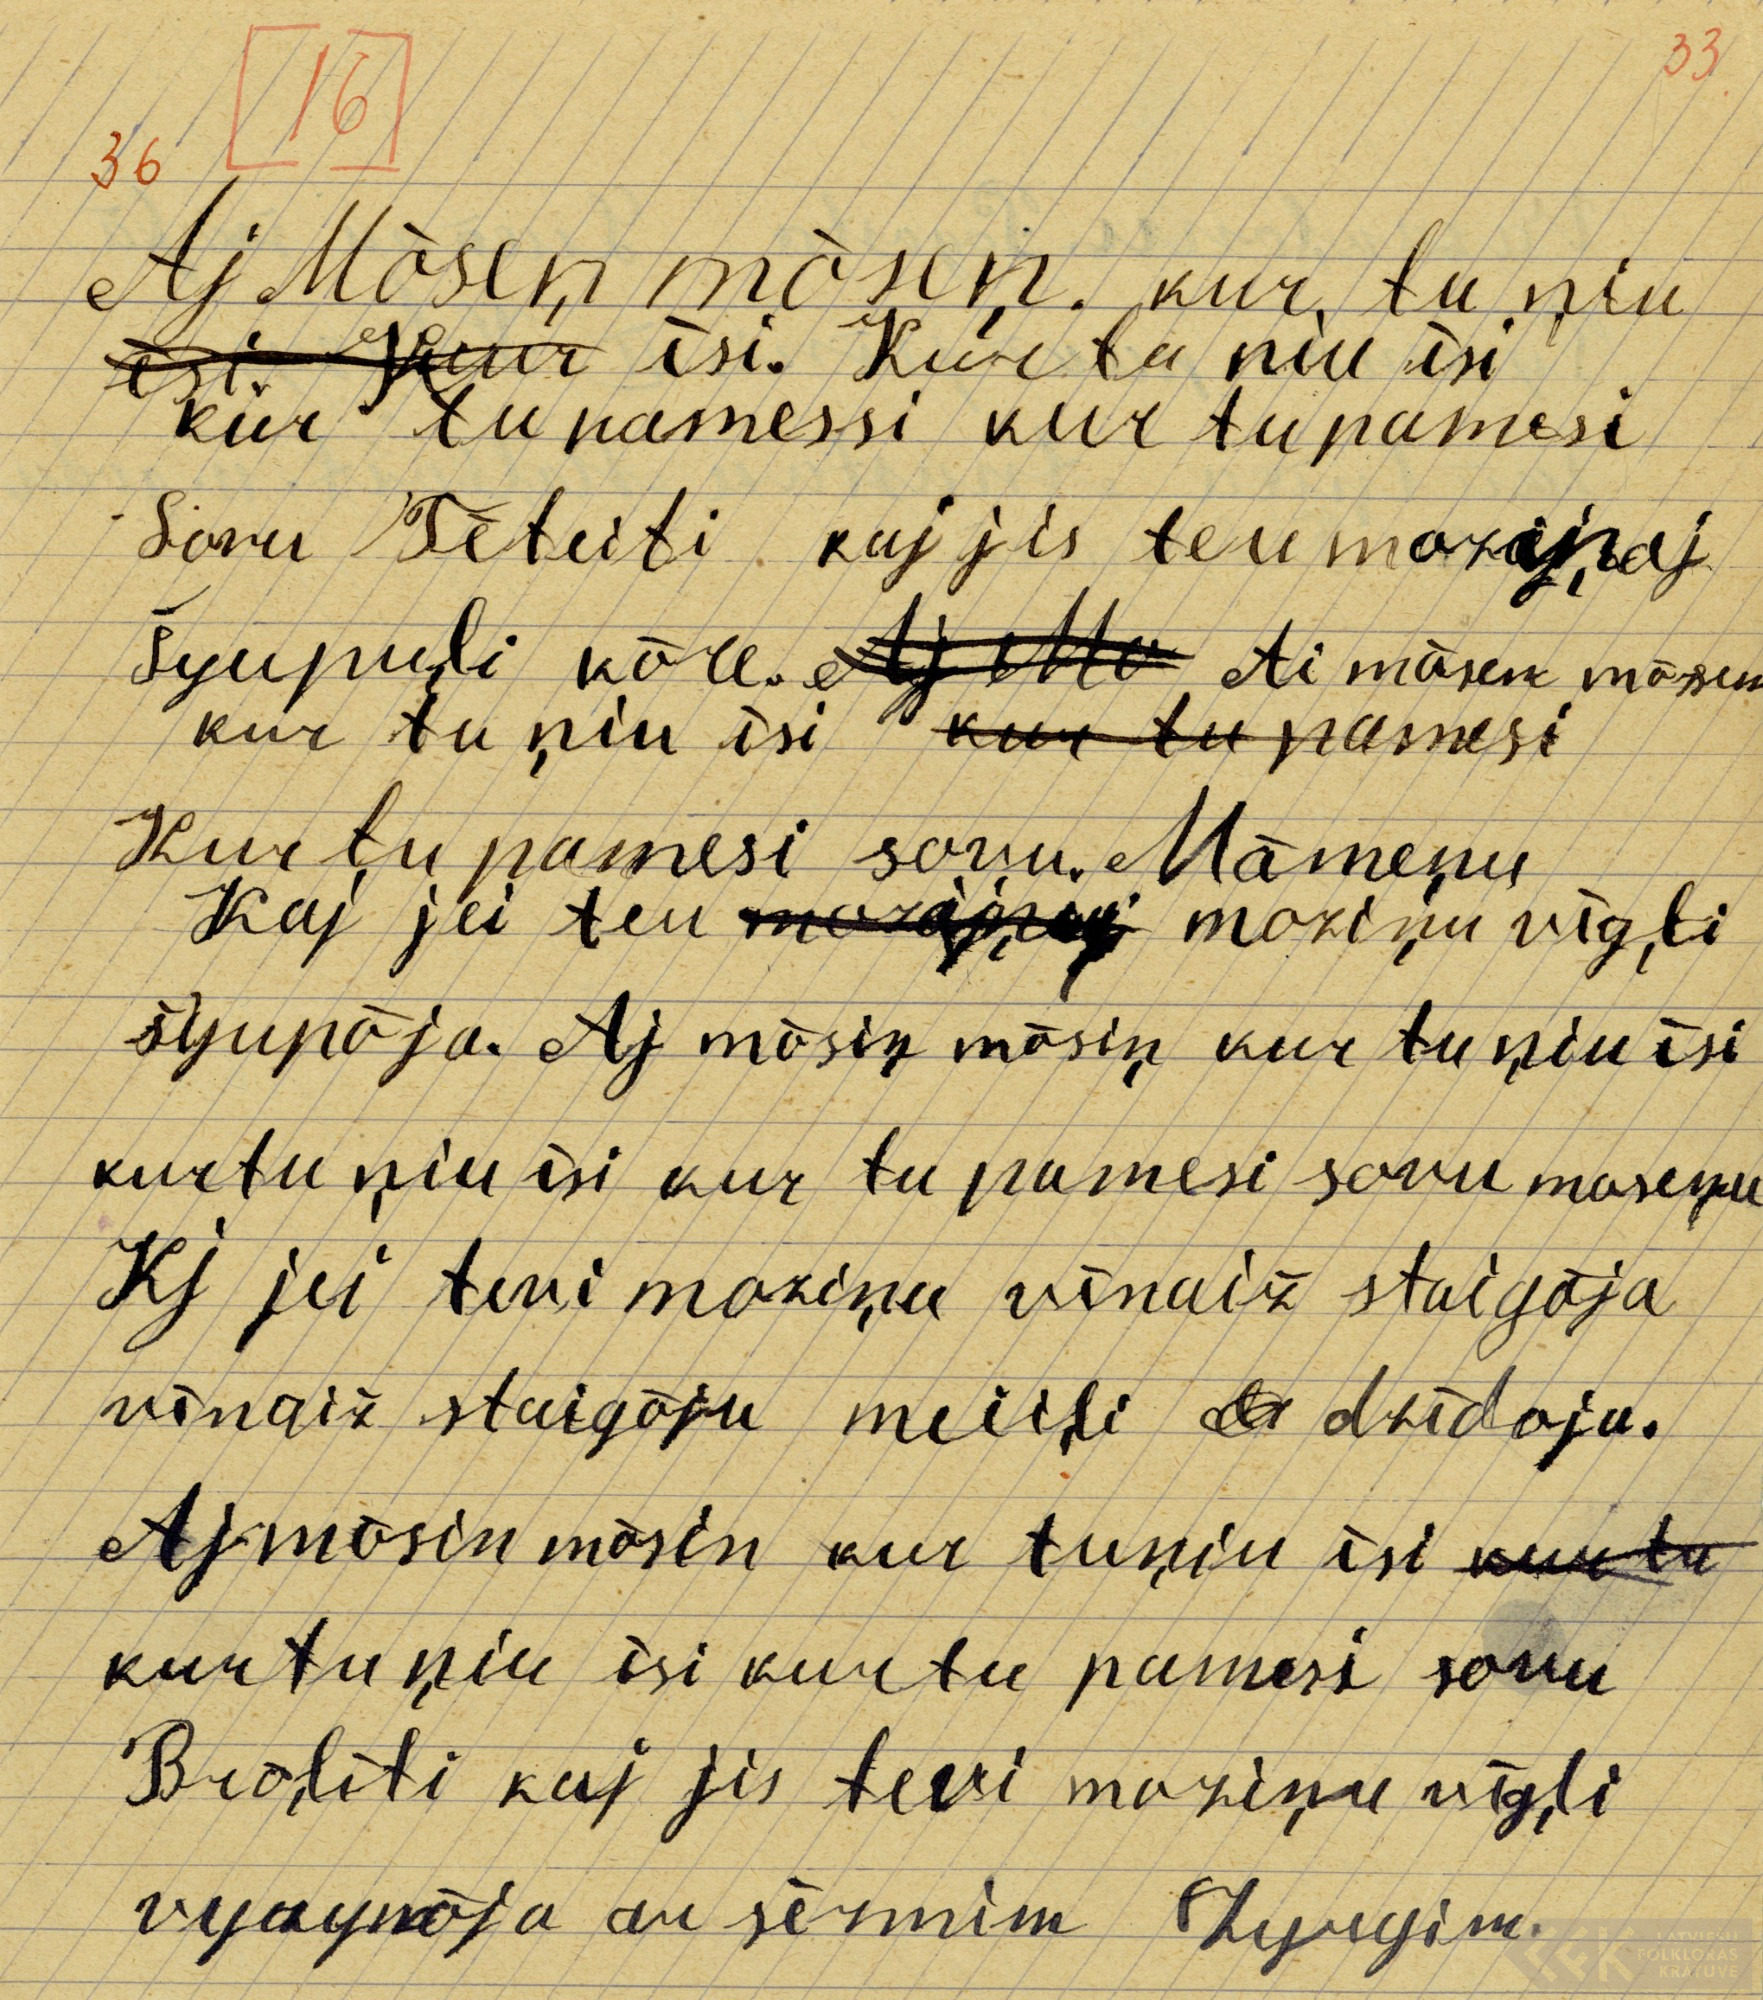 33
16
36
Aj Mōseņ mōseņ. kur tu ņiu
isi. Kur īsi. Kur tu ņiu īsi
kur tu pamessi kur tu pamesi
Sovu Tēteiti kaj jis teu
Šyupuļi kōre. Aj Mo Ai mōsen mōsen
kur tu ņiu īsi kur tu pamesi
Kur tu pamesi sovu. Māmeņu
Kaj jei teu moziņu vīgļi
šyupōja. Aj mōsiņ mōsiņ kur tu ņiu īsi
kur tu ņiu īsi kur tu pamesi sovu moseņu
Kj jei tevi moziņu vīnaiž staigōja
vīnaiž staigōju meiiļi dzīdoja.
Aj mōsin mōsin kur tu ņiu īsi kur tu
kur tu ņiu īsi kur tu pamesi sovu
Broļīti kaj jis tevi moziņu vīgļi
ar sērmim Zyrgim.
LATVIEŠU
FOLKLORAS
KRĀTUVE